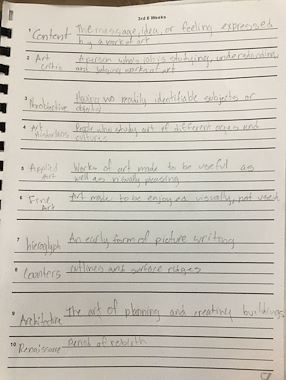 3rd 6 Weeks
1 Content The message, idea, or feeling expressed
by a work of art
2 Art A person who's job is studying, understanding,
critic and judging works of art
3 Nonobjective Having no readily identifiable subjects or
objects
4 Art People who study art of different ages and
historians cultures
5 Applied Works of art made to be useful as
Art well as visually pleasing
6 Fine Art made to be enjoyed visually, not used
Art
7 hieroglyph An early form of picture writing
8 Contours outlines and surface ridges
9 Architecture The art of planning and creating buildings
10 Renaissance period of rebirth